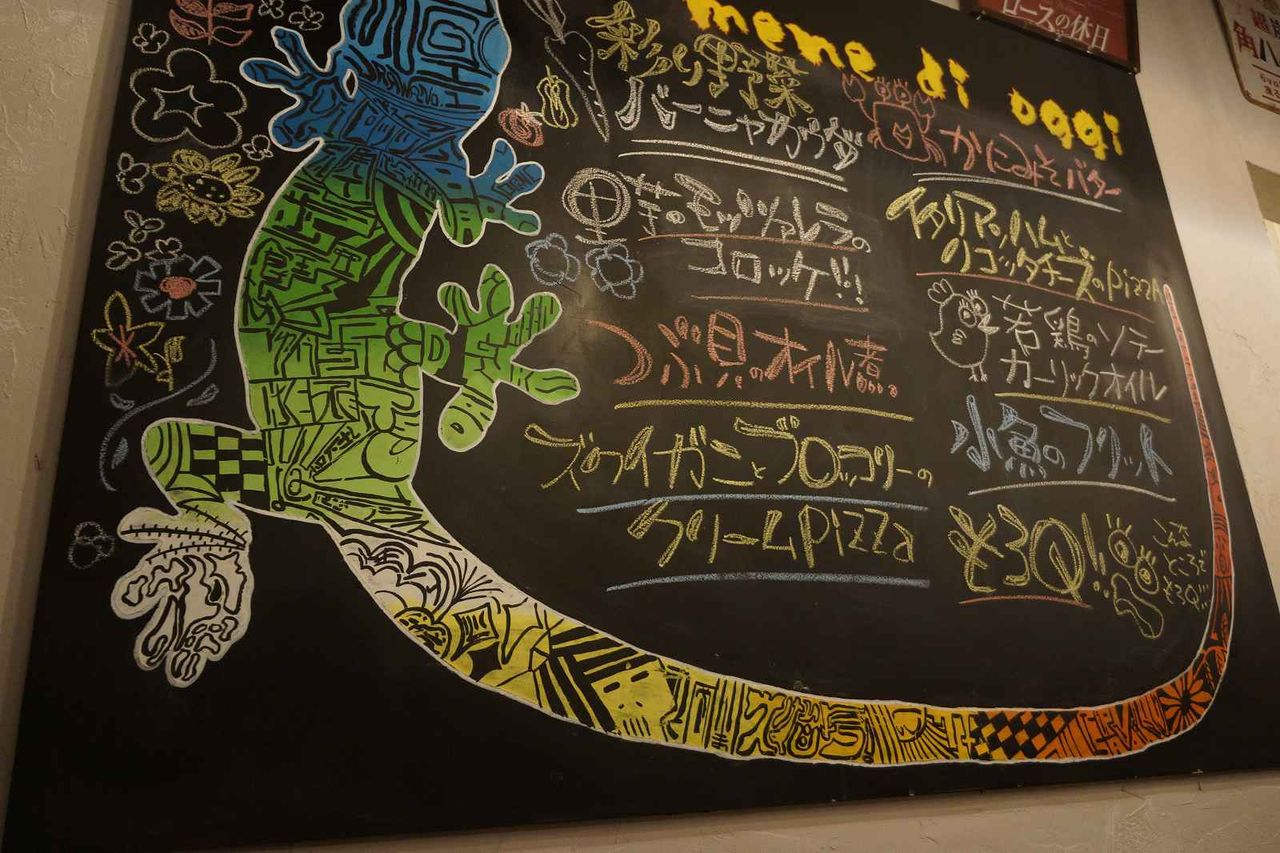 meme di oggi
彩り野菜
バーニャカウダ
里芋のモッツァレラの
コロッケ!!!
つぶ貝のオイル煮。
ズワイガニとブロッコリーの
クリームpizza
かにみそバター
イタリアンハムと
リコッタチーズのpizza
若鶏のソテー
ガーリックオイル
小魚のフリット
そ3Q!!
こんな
ところで
そ3Q!!
ロースの休日